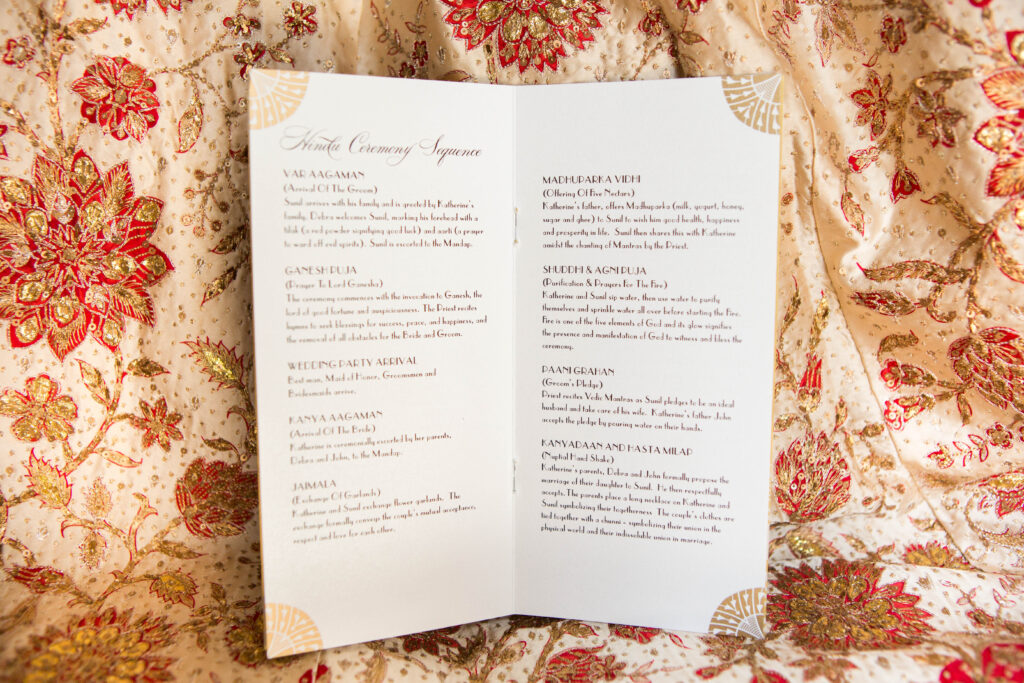 Hindu Ceremony Sequence
VAR AAGAMAN
(Arrival Of The Groom)
Sunil arrives with his family and is greeted by Katherine's
family. Debra welcomes Sunil, marking his forehead with a
tilak (a red powder signifying good luck) and aarti (a prayer
to ward off evil spirits). Sunil is escorted to the Mandap.
GANESH PUJA
(Prayer To Lord Ganesha)
The ceremony commences with the invocation to Ganesh, the
lord of good fortune and auspiciousness. The Priest recites
hymns to seek blessings for success, peace, and happiness, and
the removal of all obstacles for the Bride and Groom.
WEDDING PARTY ARRIVAL
Best man, Maid of Honor, Groomsmen and
Bridesmaids arrive.
KANYA AAGAMAN
(Arrival Of The Bride)
Katherine is ceremonially escorted by her parents,
Debra and John, to the Mandap.
JAIMALA
(Exchange Of Garlands)
Katherine and Sunil exchange flower garlands. The
exchange formally conveys the couple's mutual acceptance,
respect and love for each other.
MADHUPARKA VIDHI
(Offering Of Five Nectars)
Katherine's father, offers Madhuparka (milk, yogurt, honey,
sugar and ghee) to Sunil to wish him good health, happiness
and prosperity in life. Sunil then shares this with Katherine
amidst the chanting of Mantras by the Priest.
SHUDDHI & AGNI PUJA
(Purification & Prayers For The Fire)
Katherine and Sunil sip water, then use water to purify
themselves and sprinkle water all over before starting the Fire.
Fire is one of the five elements of God and its glow signifies
the presence and manifestation of God to witness and bless the
ceremony.
PAANI GRAHAN
(Groom's Pledge)
Priest recites Vedic Mantras as Sunil pledges to be an ideal
husband and take care of his wife. Katherine's father John
accepts the pledge by pouring water on their hands.
KANYADAAN AND HASTA MILAP
(Nuptial Hand Shake)
Katherine's parents, Debra and John formally propose the
marriage of their daughter to Sunil. He then respectfully
accepts. The parents place a long necklace on Katherine and
Sunil symbolizing their togetherness. The couple's clothes are
tied together with a chunni - symbolizing their union in the
physical world and their indissoluble union in marriage.